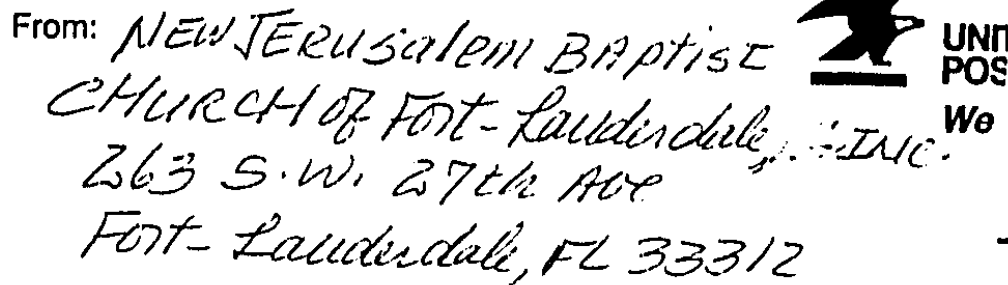 From: NEW JERUSalem BAptist
CHURCH of Fort-Lauderdale, INC.
263 S.W. 27th Ave
Fort-Lauderdale, FL 33312
UNIT
POS
We